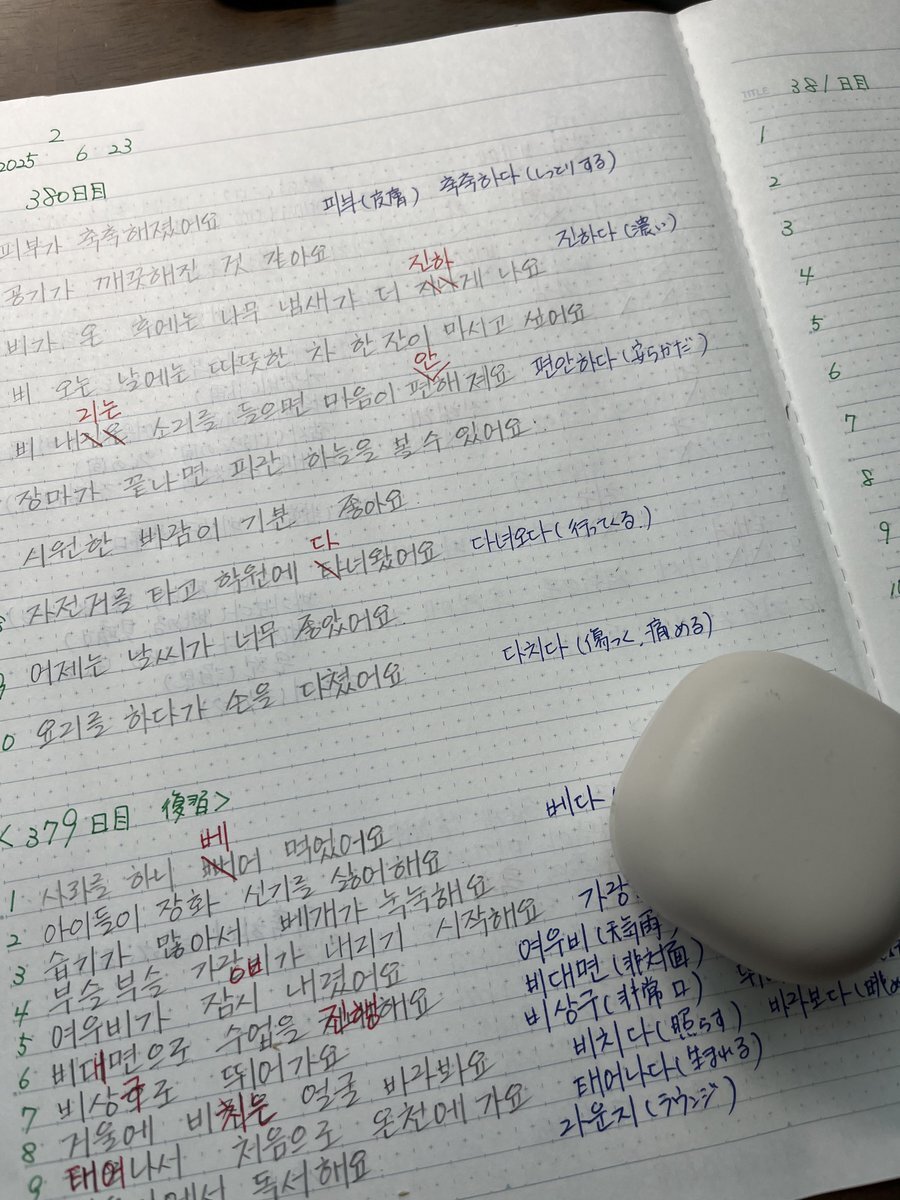 2
2025 6 23
380日目
피부(皮膚) 축축하다(しっとりする)
피부가 축축해졌어요
공기가 깨끗해진 것 같아요
진하다(濃い)
진하
비가 온 후에는 나무 냄새가 더 게 나요
비 오는 날에는 따뜻한 차 한 잔이 마시고 싶어요
리는 안
비 내 소리를 들으면 마음이 편해져요 편안하다(安らかだ)
장마가 끝나면 파란 하늘을 볼 수 있어요.
시원한 바람이 기분 좋아요
다
8 자전거를 타고 학원에 녀왔어요 다녀오다(行ってくる)
9 어제는 날씨가 너무 좋았어요.
다치다(傷つく、痛める)
10 요리를 하다가 손을 다쳤어요
<379日目 復習>
베다
베
1 사과를 하니 어 먹었어요
2 아이들이 장화 신기를 싫어해요
3 습기가 많아서 베개가 눅눅해요
4 부슬부슬 가랑비가 내리기 시작해요 가랑
5 여우비가 잠시 내렸어요 여우비(天気雨)
6 비대면으로 수업을 진행해요 비대면(非対面)
7 비상구로 뛰어가요 비상구(非常口)
8 거울에 비친 얼굴 바라봐요 비치다(照らす) 바라보다
9 태어나서 처음으로 온천에 가요 태어나다(生まれる)
독서해요 라운지(ラウンジ)
TITLE 381日目
1
2
3
4
5
6
7
8
9
10